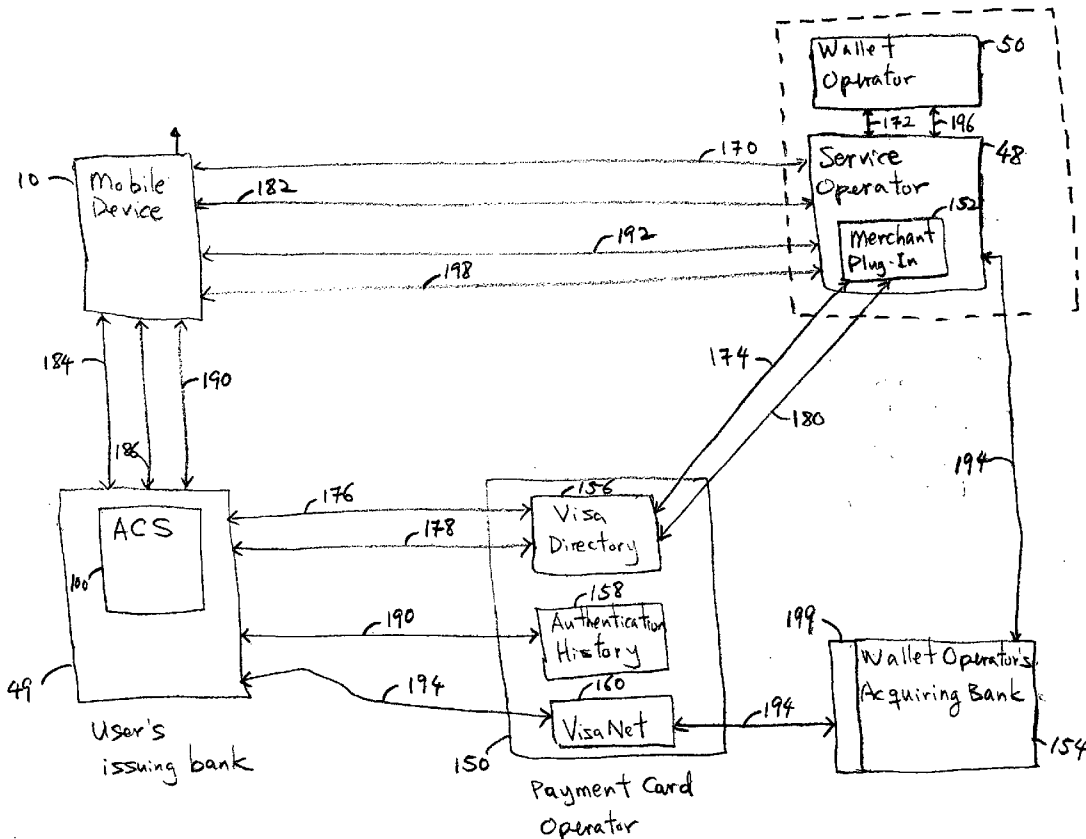 Wallet
Operator
50
172
196
Service
Operator
48
152
Merchant
Plug-In
10
Mobile
Device
170
182
192
198
184
186
190
174
180
194
ACS
100
49
User's
issuing bank
176
178
190
194
156
Visa
Directory
158
Authentication
History
160
VisaNet
150
Payment Card
Operator
194
199
Wallet Operator's
Acquiring Bank
154